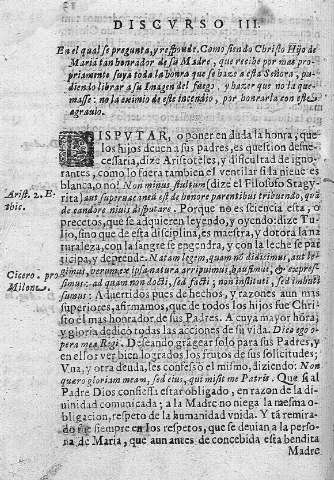 DISCVRSO III.
En el qual se pregunta, y responde. Como siendo Christo Hijo de
Maria tan honrador de su Madre, que recibe por mas pro-
priamente suya toda la honra que se haze a esta Señora, pu-
diendo librar a su Imagen del fuego, y hazer que no la que-
masse: no la eximio de este incendio, por honrarla con este
agrauio.
DISPVTAR, o poner en duda la honra, que
los hijos deuen a sus padres, es question desne-
cessaria, dize Aristoteles, y dificultad de igno-
rantes, como lo fuera tambien el ventilar si la nieue es
blanca, o no? Non minus stultum (dize el Filosofo Stagy-
rita) aut superuacaneũ est de honore parentibus tribuendo, quã
de candore niuis disputare. Porque no es sciencia esta, o
precetos, que se adquieren leyendo, y oyendo: dize Tu-
lio, sino que de esta disciplina, es maestra, y dotora la na
turaleza, con la sangre se engendra, y con la leche se par
ticipa, y deprende. Natam legem, quam non didicimus, aut le-
gimus, verum ex ipsa natura arripuimus, hausimus, & expres-
simus: ad quam non docti, sed facti; non instituti, sed imbuti
sumus: Aduertidos pues de hechos, y razones aun mas
superiores, afirmamos, que de todos los hijos fue Chris-
to el mas honrador de sus Padres. A cuya mayor hõra,
y gloria dedicò todas las acciones de su vida. Dico ego o-
pera mea Regi. Deseando grãgear solo para sus Padres, y
en ellos ver bien logrados los frutos de sus solicitudes;
Vna, y otra deuda, les confessò el mismo, diziendo: Non
quero gloriam meam, sed eius, qui misit me Patris. Que si al
Padre Dios confiessa estar obligado, en razon de la di-
uinidad comunicada; a la Madre no niega la mesma o-
bligacion, respeto de la humanidad vnida. Y tã remira-
do fue siempre en los respetos, que se deuian a la perso-
na de Maria, que aun antes de concebida esta bendita
Madre
Arist. 2. E-
thic.
Cicero. pro
Milone.